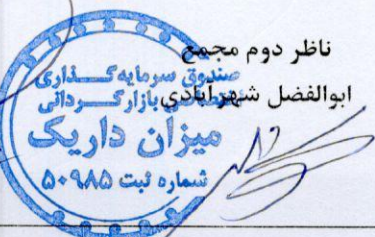 ناظر دوم مجمع
ابوالفضل شهرآبادی
صندوق سرمایه‌گذاری
بازارگردانی
میزان داریک
شماره ثبت ۵۰۹۸۵